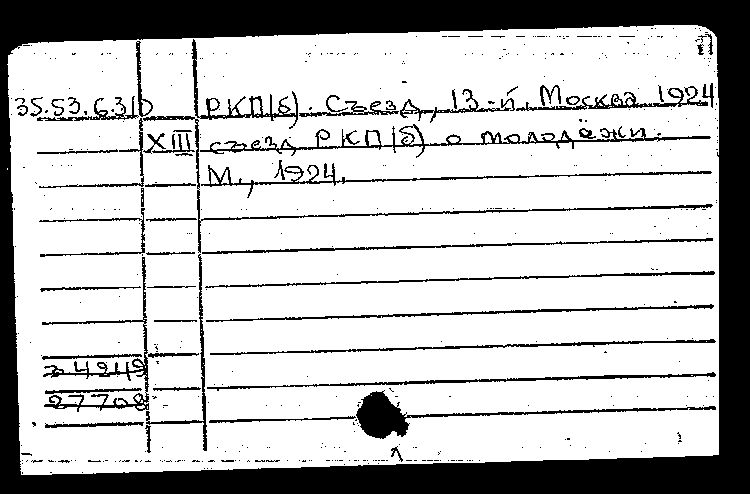 35.53.6.310 РКП(б). Съезд, 13-й. Москва 1924
XIII съезд РКП(б) о молодёжи.
М., 1924.
34249
27708